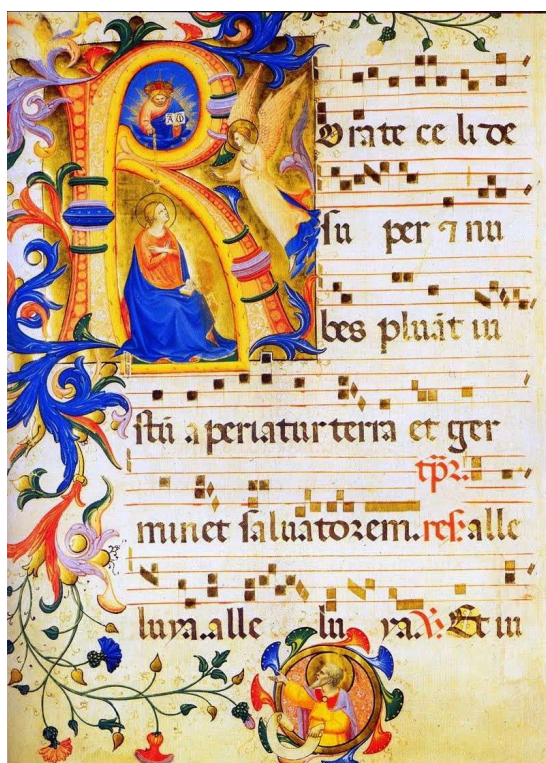 AΩ
Rorate ce li de
su per ⁊ nu
bes pluāt iu
stū a periatur terra et ger
minet saluatorem. res: alle
luya. alle lu ya. V: Et iu